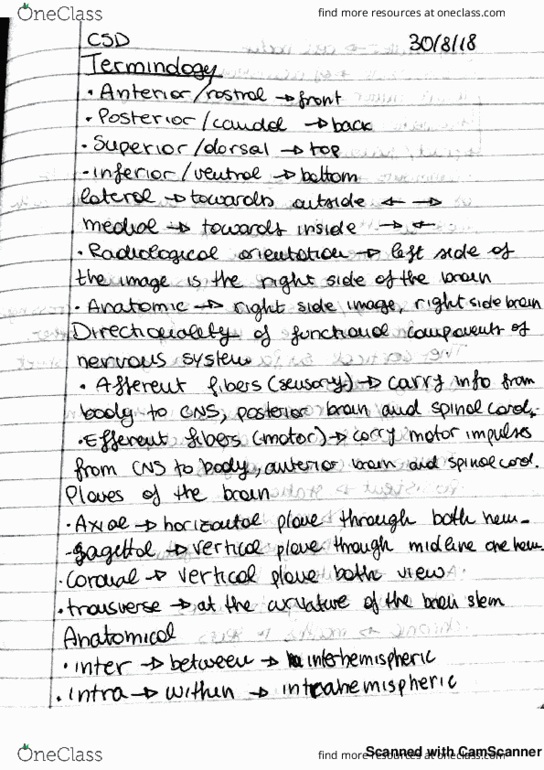 OneClass
find more resources at oneclass.com
CSD 30/8/18
Terminology
• Anterior/rostral → front
• Posterior/caudal → back
• Superior/dorsal → top
• inferior/ventral → bottom
lateral → towards outside ← →
medial → towards inside → ←
• Radiological orientation → left side of
the image is the right side of the brain
• Anatomic → right side image, right side brain
Directionality of functional components of
nervous system
• Afferent fibers (sensory) → carry info from
body to CNS, posterior brain and spinal cord.
• Efferent fibers (motor) → carry motor impulses
from CNS to body, anterior brain and spinal cord.
Planes of the brain
• Axial → horizontal plane through both hem-
• Sagettal → vertical plane through midline one hem.
• Coronal → vertical plane both view
• transverse → at the curvature of the brain stem
Anatomical
• inter → between → interhemispheric
• intra → within → intrahemispheric
OneClass
find more resources at oneclass.com
Scanned with CamScanner